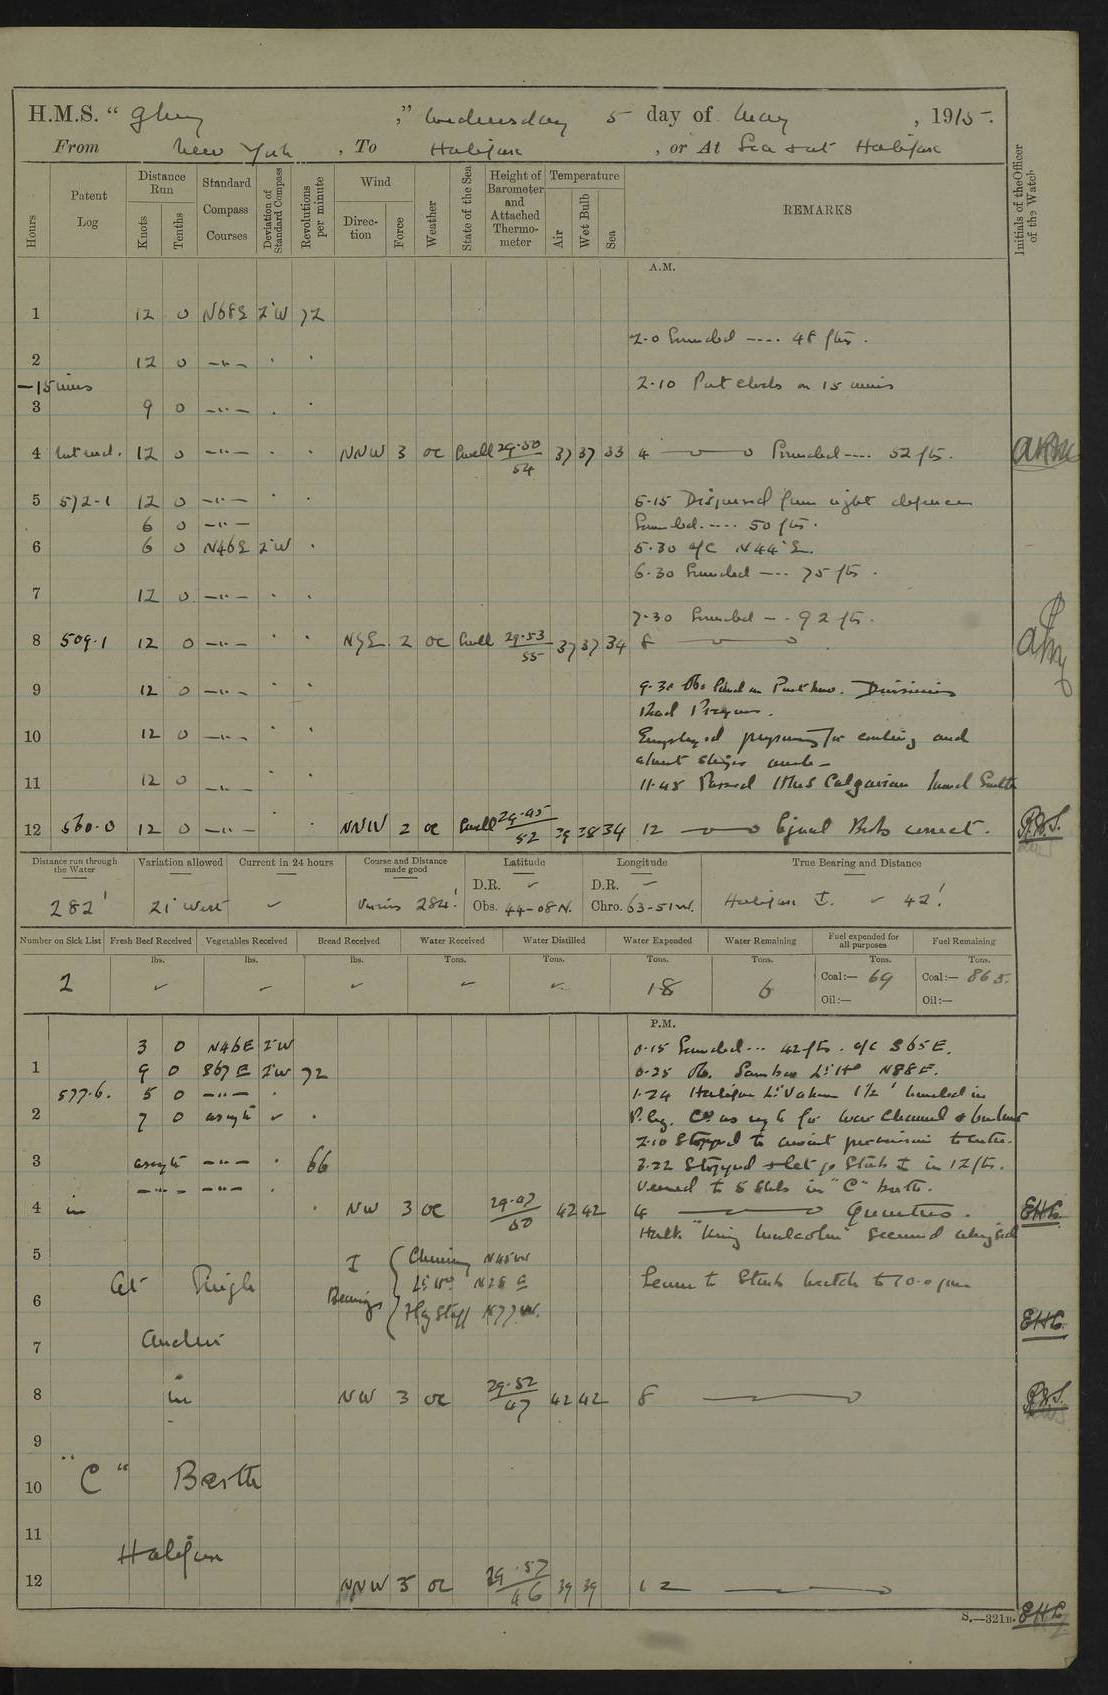 H.M.S. " Glory ," Wednesday 5 day of May , 1915.
From New York , To Halifax , or At Sea & at Halifax
Hours
Patent Log
Distance Run
Knots
Tenths
Standard Compass Courses
Deviation of Standard Compass
Revolutions per minute
Wind
Direction
Force
Weather
State of the Sea
Height of Barometer and Attached Thermometer
Temperature
Air
Wet Bulb
Sea
REMARKS
Initials of the Officer of the Watch
A.M.
1 12 0 N68E 2°W 72
2.0 Sounded ---- 48 fts.
2 12 0 -"-
-15 mins 2.10 Put clocks on 15 mins
3 9 0 -"-
4 12 0 -"- NNW 3 oc Swell 29.50/54 37 37 33 4 Sounded ---- 52 fts.
5 572.1 12 0 -"- 5.15 Dispersed from night defence
6 0 -"- Sounded ---- 50 fts.
6 6 0 N46E 2°W 5.30 a/c N44°E.
6.30 Sounded --- 75 fts.
7 12 0 -"-
7.30 Sounded -- 92 fts.
8 509.1 12 0 -"- 2 oc Swell 29.53/55 37 37 34 8
9 12 0 -"- 9.30 Divisions
Read Prayers.
10 12 0 -"- Employed preparing for coaling and
11 12 0 -"- 11.45 Passed HMS Calgarian
12 560.0 12 0 -"- NNW 2 oc Swell 29.45/52 39 38 34 12 correct. R.W.S.
Distance run through the Water
Variation allowed
Current in 24 hours
Course and Distance made good
Latitude
Longitude
True Bearing and Distance
282' 21° West Various 284'. D.R. Obs. 44-08 N. D.R. Chro. 63-51 W. Halifax I. 42'.
Number on Sick List
Fresh Beef Received
Vegetables Received
Bread Received
Water Received
Water Distilled
Water Expended
Water Remaining
Fuel expended for all purposes
Fuel Remaining
lbs. lbs. lbs. Tons. Tons. Tons. Tons. Tons. Tons.
2 18 6 Coal:— 69 Coal:— 865.
Oil:— Oil:—
P.M.
3 0 N46E 2°W 0.15 Sounded --- 42 fts. a/c S65E.
1 9 0 S67E 2°W 72 0.25 Ob. Sambro Lt. Ho. N88E.
577.6. 5 0 -"- 1.24 Halifax Lt. Vessel 1½'
2 7 0 as reqte Co. as reqte for War Channel &
2.10 Stopped to permission to enter.
3 as reqte -"- 66 3.22 Stopped & let go Stbd I in 12 fts.
-"- -"- Veered to 5 Shls in "C" berth.
4 in NW 3 oc 29.47/50 42 42 4 Quarters. EHG.
Hulk "King Malcolm" secured alongside
5 I Bearings Chimney N45W
At Single Lt. Ho. N28E Leave to Starb Watch to 10.0 pm
6 Flag Staff N77W. EHG.
7 Anchor
8 in NW 3 oc 29.52/47 42 42 8 R.W.S.
9
10 "C" Berth
11
Halifax
12 NNW 3 oc 29.57/46 39 39 12
S.—321B. EHG